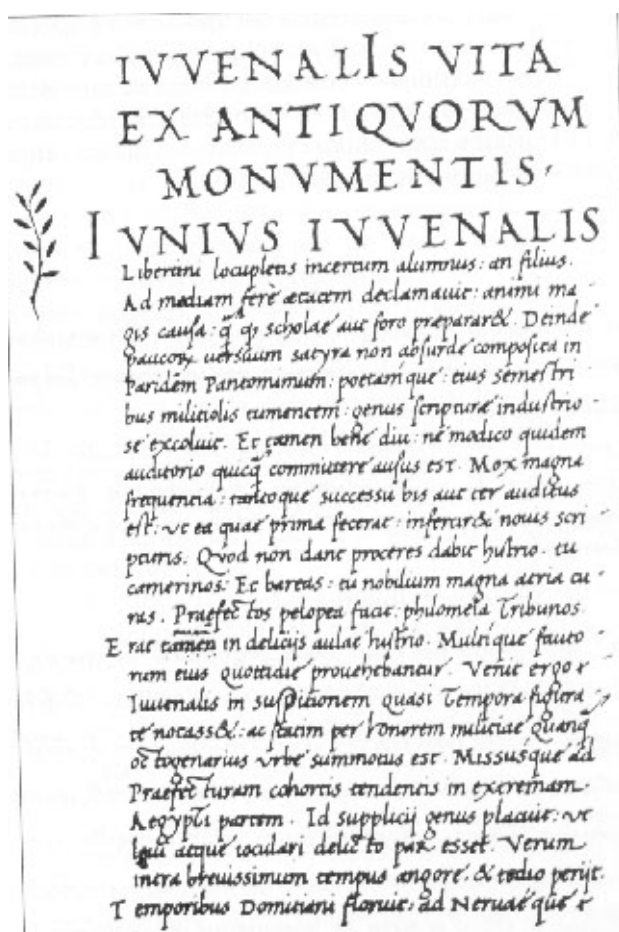 IVVENALIS VITA
EX ANTIQVORVM
MONVMENTIS.
IVNIVS IVVENALIS
Libertini locupletis incertum alumnus: an filius.
Ad mediam ferè ætatem declamauit: animi ma
gis causa: q̃ qȝ scholae aut foro præparar&. Deinde
paucoꝝ uersuum satyra non absurde composita in
Paridem Pantomimum: poetamque: eius semestri
bus militiolis tumentem: genus scripturæ industrio
se excoluit. Et tamen bene diu: ne modico quidem
auditorio quicq̃ committere ausus est. Mox magna
frequentia: tantoque successu bis aut ter auditus
est: vt ea quae prima fecerat: infercir& nouis scri
pturis. Quod non dant proceres dabit histrio. tu
camerinos: Et bareas: tu nobilium magna atria cu
ras. Præfectos pelopea facit: philomela Tribunos.
Erat tamen in delicijs aulae histrio. Multique fauto
rum eius quottidie prouehebantur. Venit ergo
Iuuenalis in suspitionem quasi Tempora figura
te notass&: ac statim per honorem militiae quanq̃
octogenarius vrbe summotus est. Missusque ad
Praefecturam cohortis tendentis in extremam
Aegypti partem. Id supplicij genus placuit: vt
leui atque ioculari delicto par esset. Verum
intra breuissimum tempus angore. & tedio perijt.
Temporibus Domitiani floruit: ad Neruae que